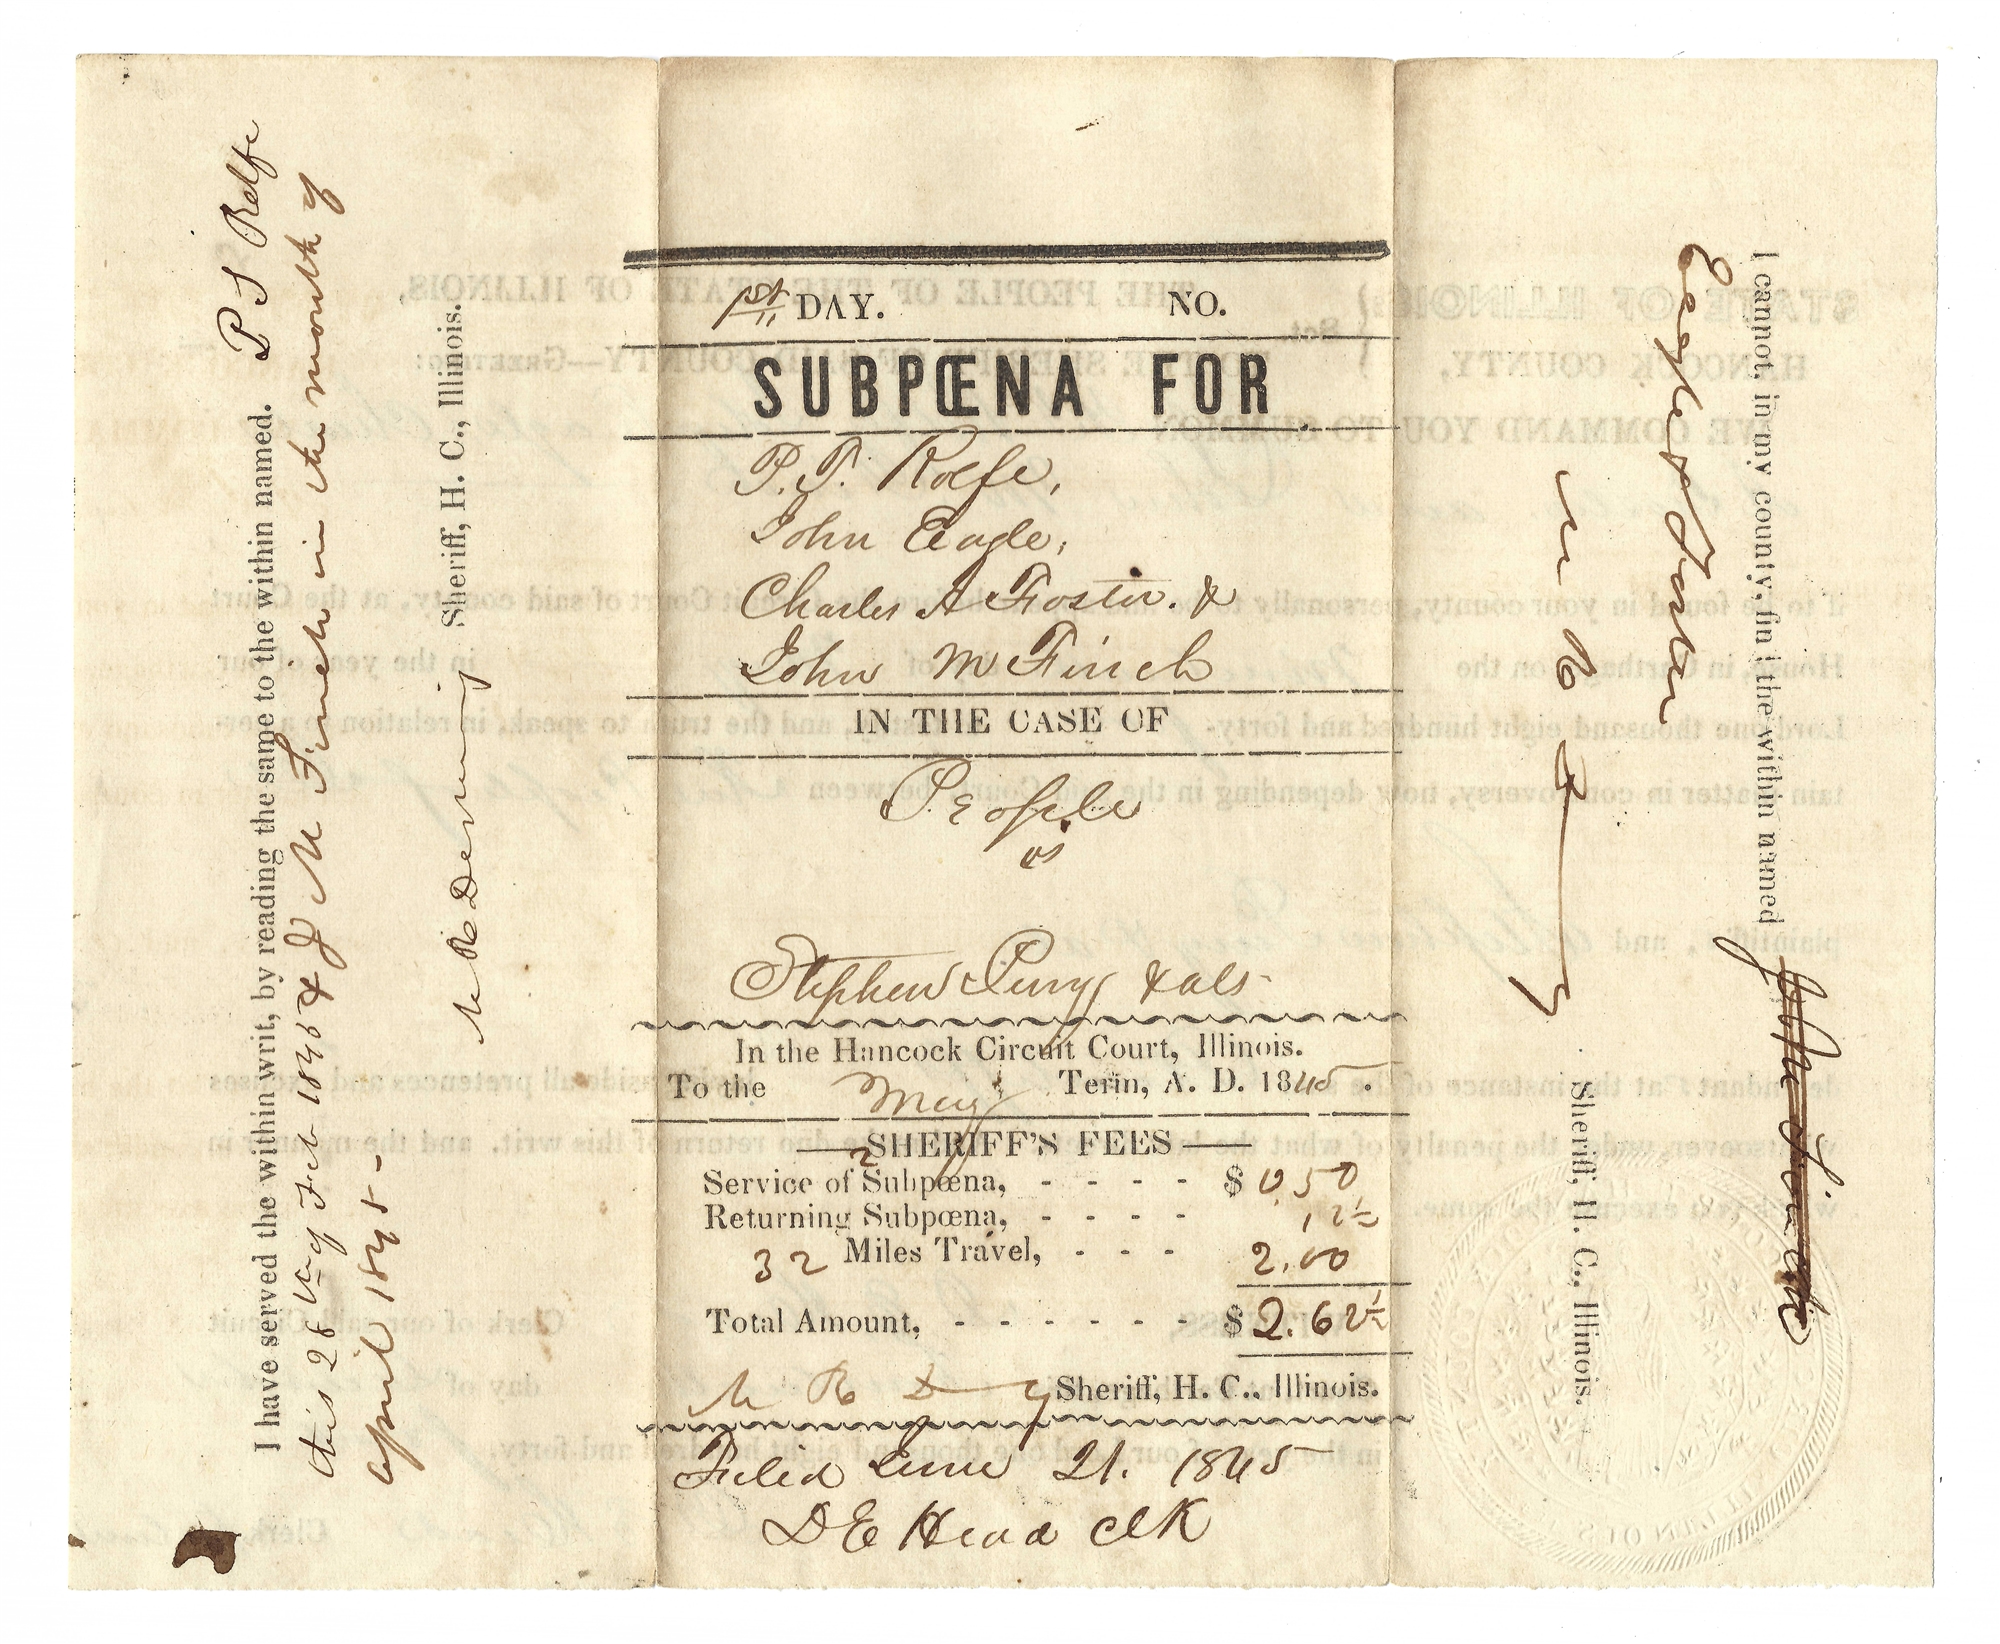 I have served the within writ, by reading the same to the within named. P S Rolfe
this 28 day Feb 1845 & J M Finch in the month of
April 1845 –
M R Deming
Sheriff, H. C., Illinois.
1st DAY. NO.
SUBPŒNA FOR
P. T. Rolfe,
John Eagle,
Charles A Foster. &
John M Finch
IN THE CASE OF
People
vs
Stephen Perry & als
In the Hancock Circuit Court, Illinois.
To the May Term, A. D. 1845.
SHERIFF'S FEES
Service of 2 Subpœna, - - - - $ 0.50
Returning Subpœna, - - - - 12½
32 Miles Travel, - - - 2.00
Total Amount, - - - - - - $ 2.62½
M R D——g Sheriff, H. C., Illinois.
Filed June 21. 1845
D E Head Clk
I cannot, in my county, fin I the within named John M Finch
Eagle & Foster
M R D——g
Sheriff, H. C., Illinois.